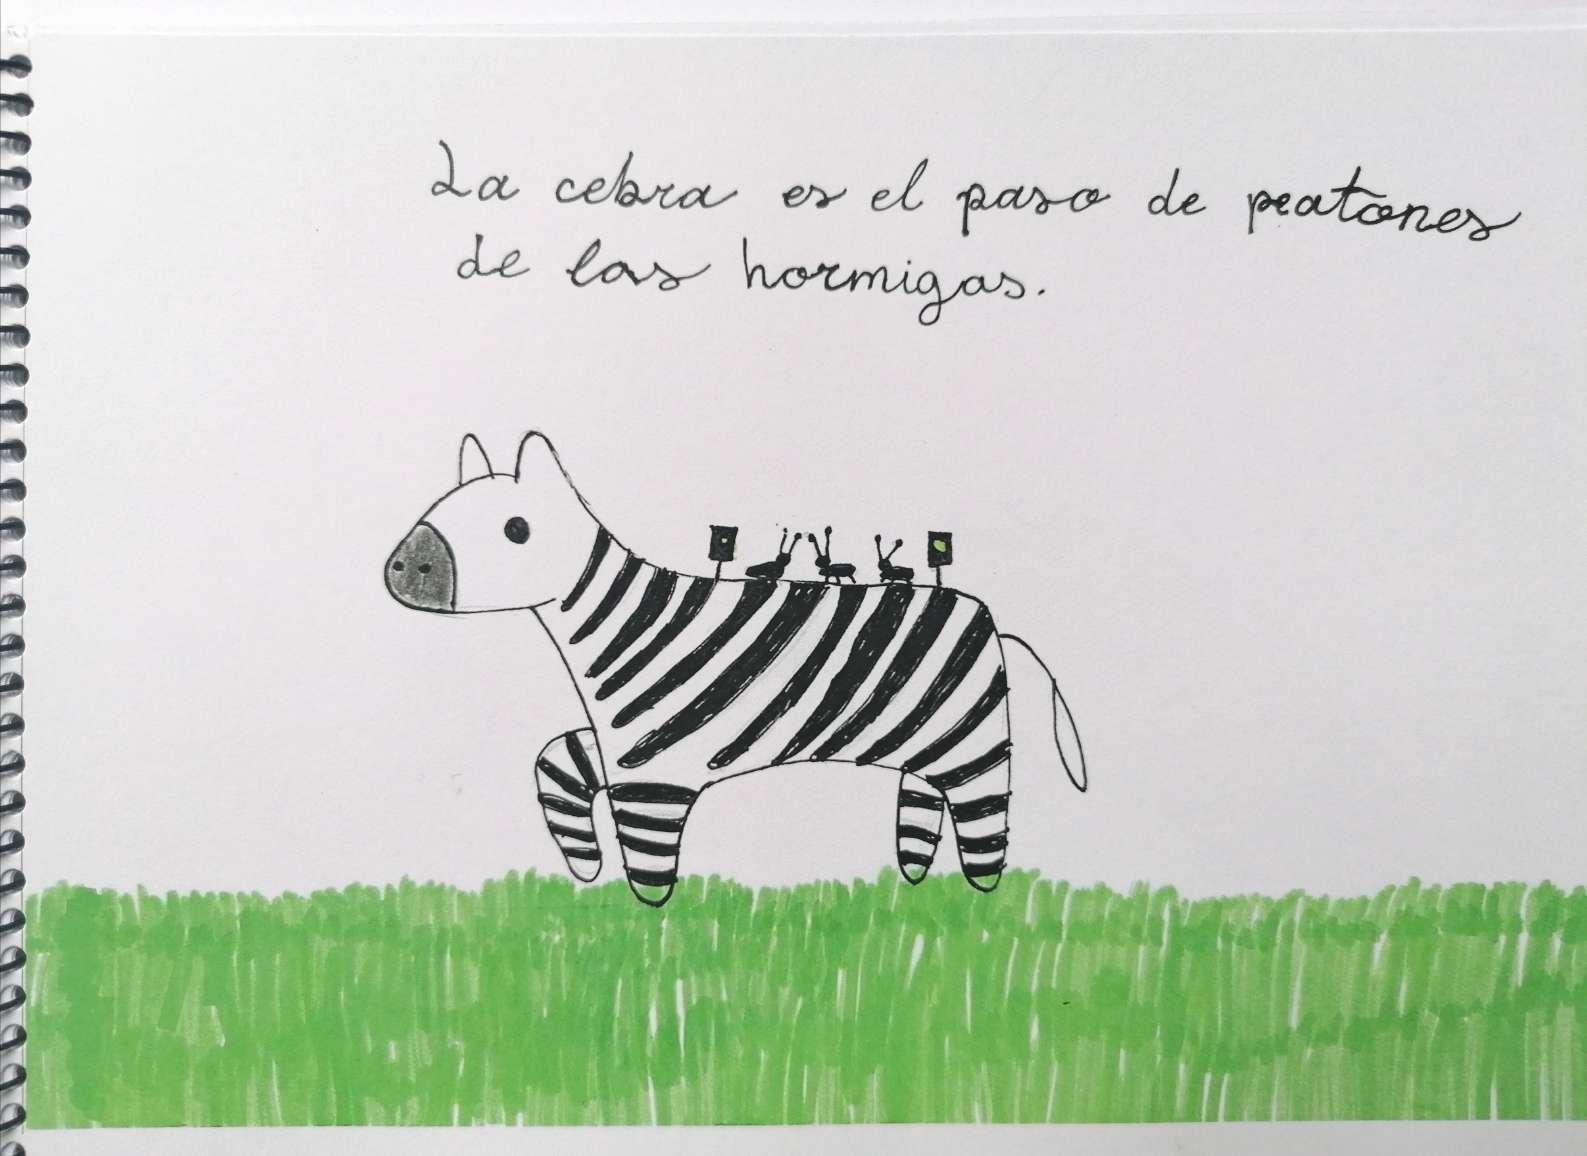 La cebra es el paso de peatones
de las hormigas.